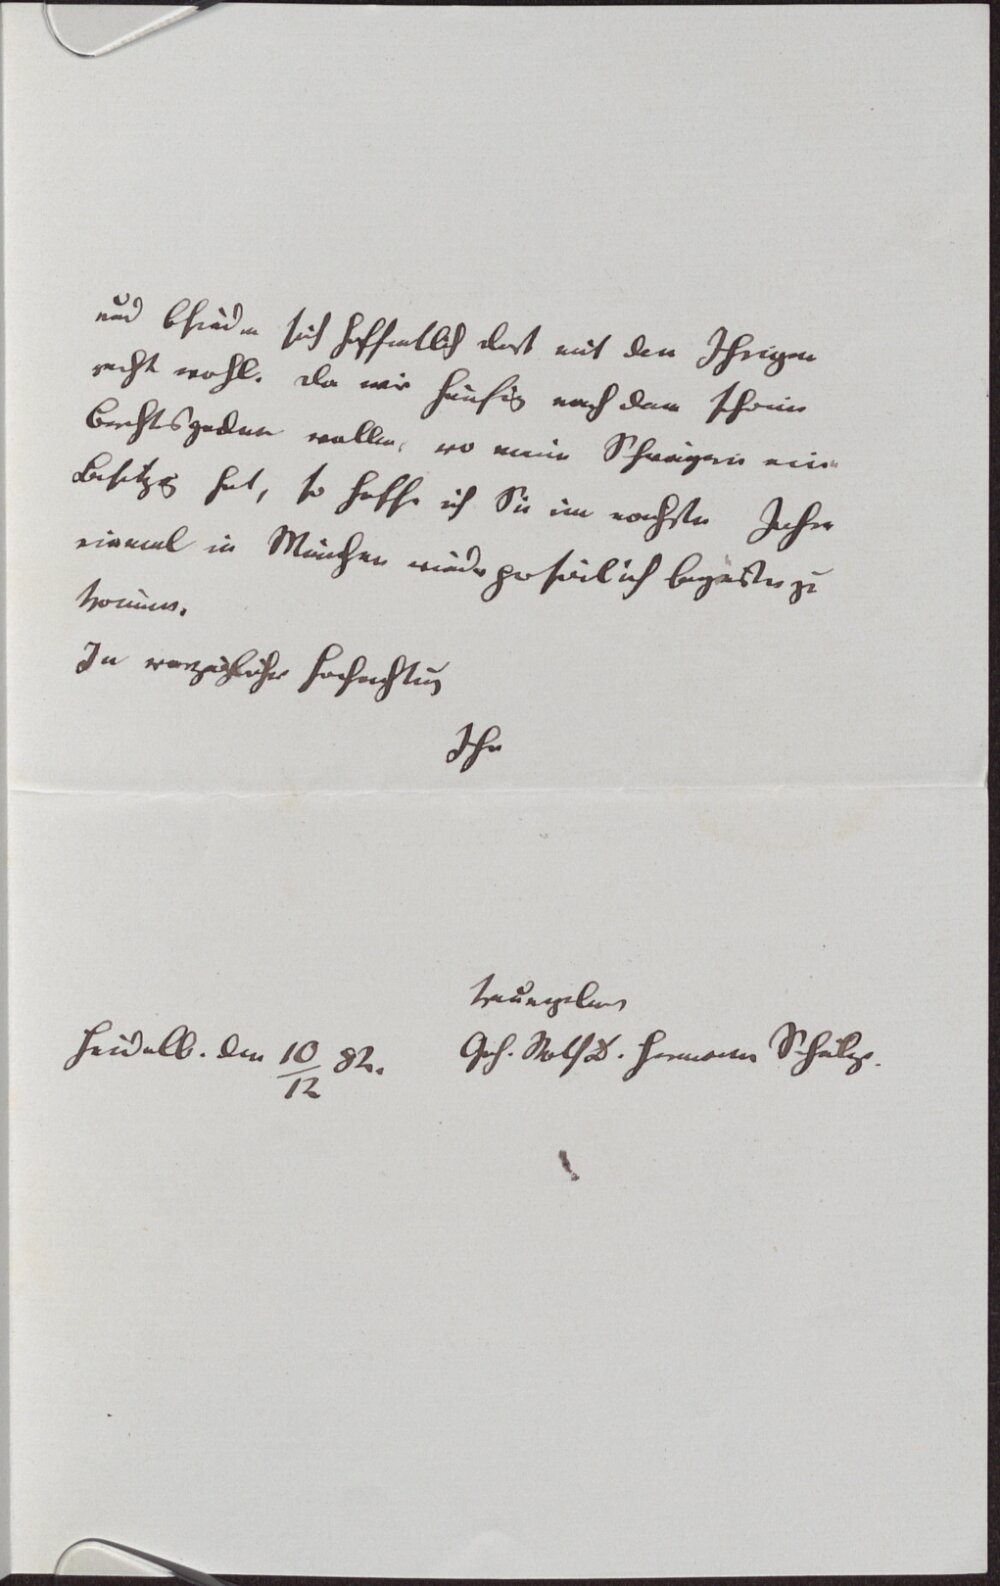 und befinden sich hoffentlich dort mit den Ihrigen
recht wohl. Da wir häufig nach dem schönen
Berchtesgaden wallen, wo meine Schwägerin eine
Besitzg hat, so hoffe ich Sie im nächsten Jahre
einmal in München wieder persönlich begrüßen zu
können.
In vorzüglicher Hochachtung
Ihr
treuergebener
Heidelb. den 10/12 82. Geh. Rath Dr. Hermann Schulze.